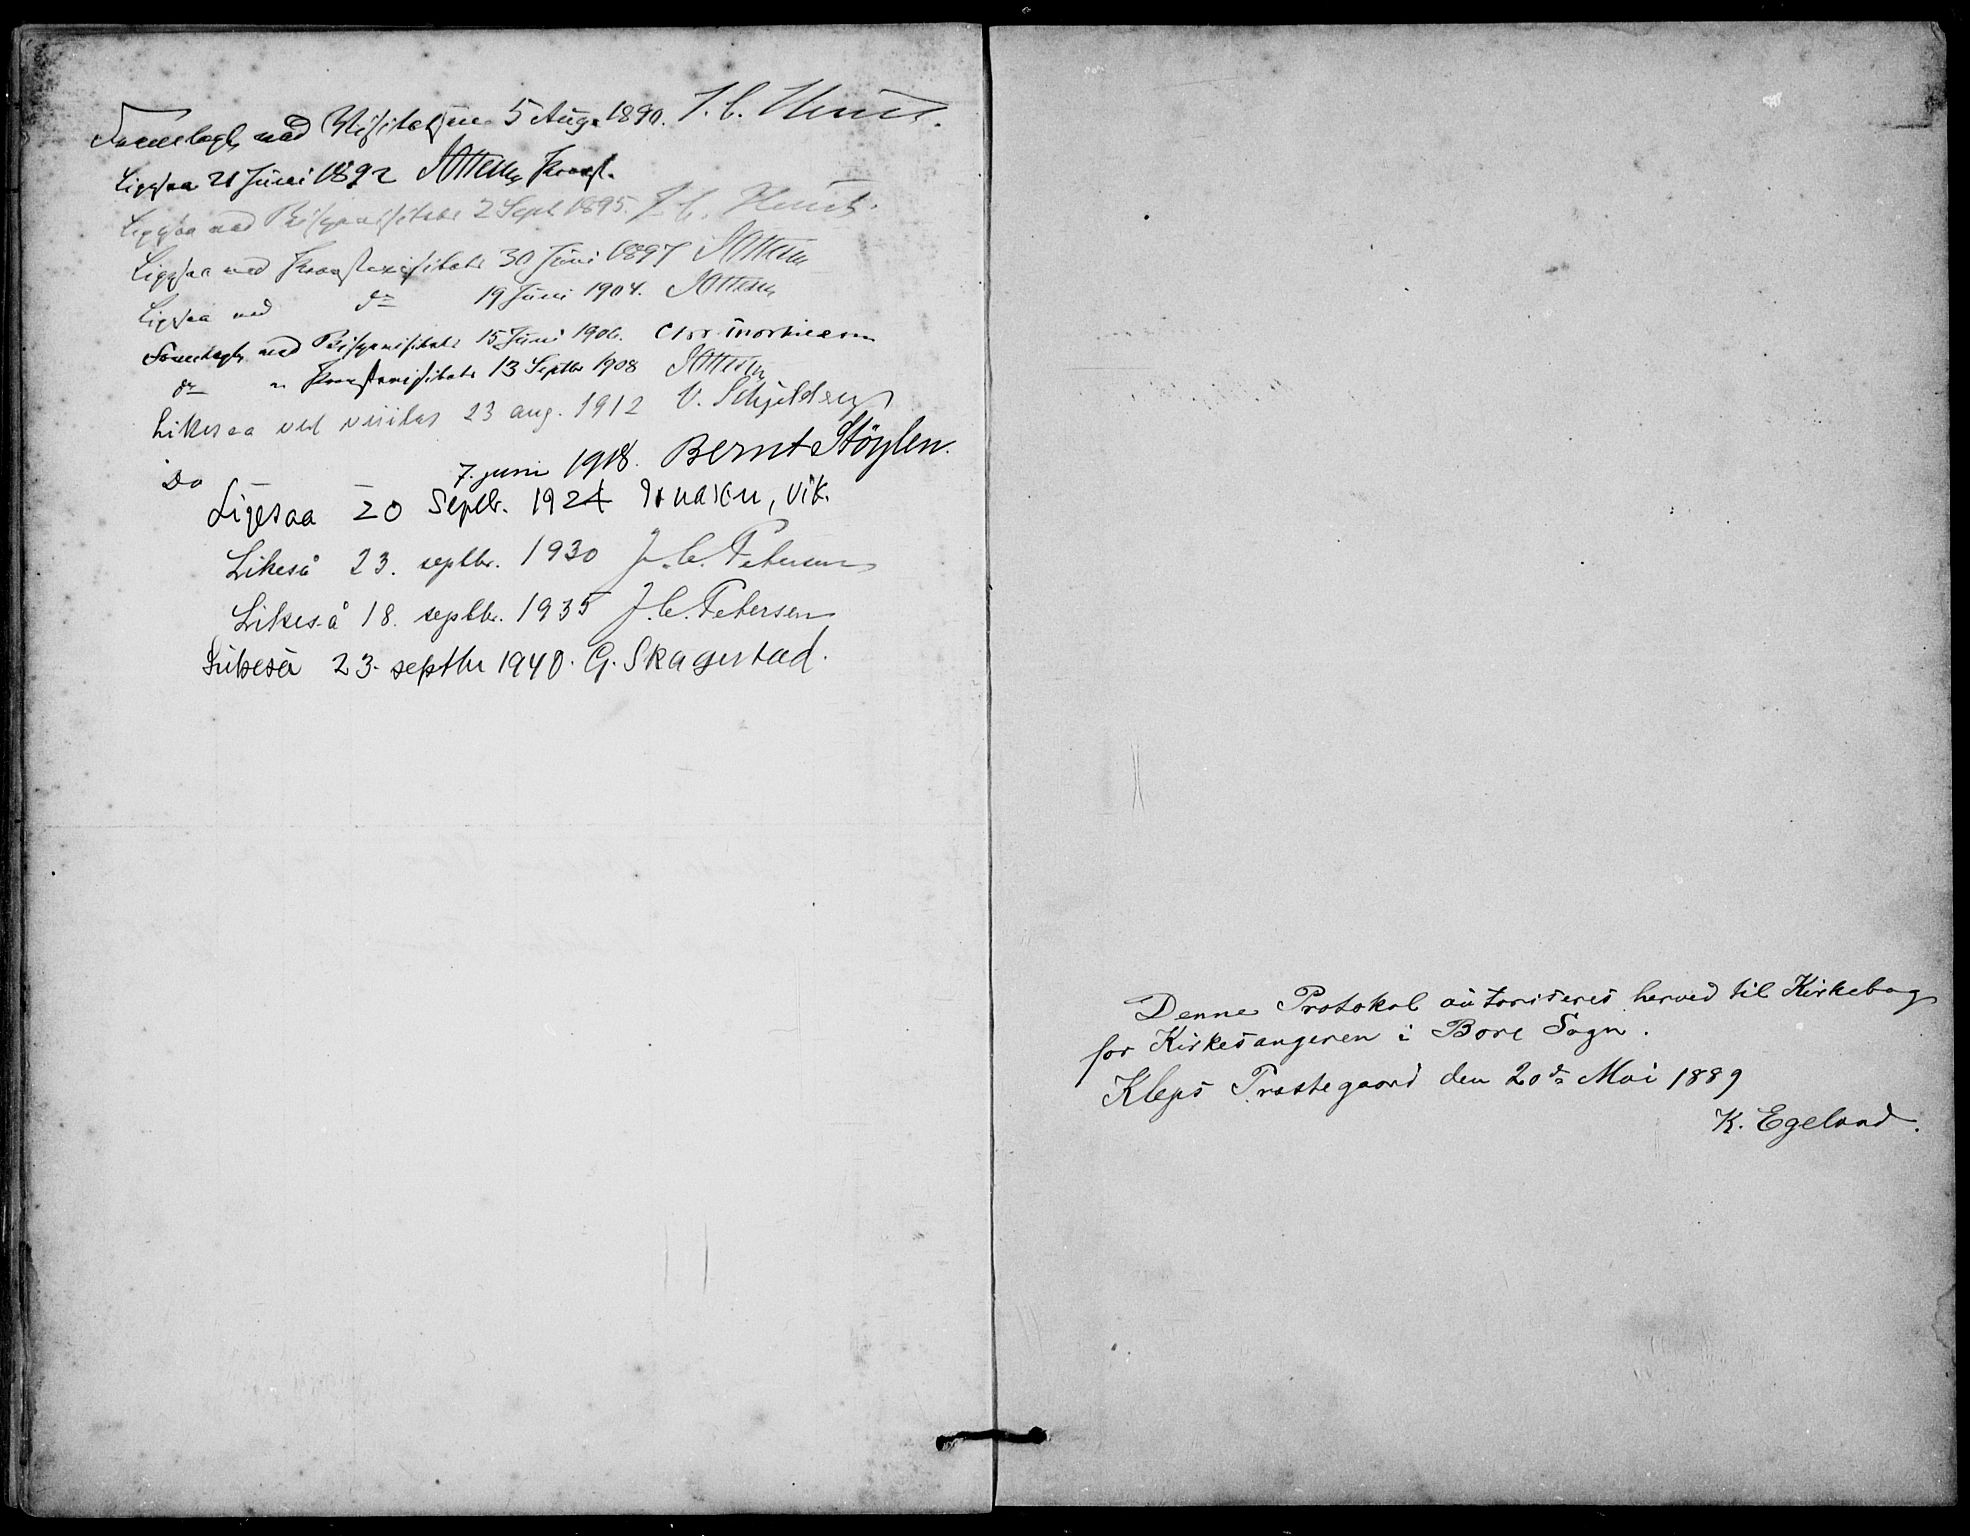 Fremlagt ved Visitatsen 5 Aug. 1890. J. C. Heuch.
Ligesaa 21 Juni 1892 Provst.
Ligesaa ved Bispevisitats 2 Sept 1895. J. C. Heuch.
Ligesaa ved Provstevisitats 30 Juni 1897
Ligesaa ved do 19 Juni 1904.
Fremlagt ved Bispevisitats 15 Juni 1906.
do " Provstevisitats 13 Septbr 1908
Likesaa ved visitas 23 aug. 1912 V. Schjelderup
Do 7. juni 1918. Bernt Støylen.
Ligesaa 20 Septbr. 1924 vik.
Likeså 23. septbr. 1930 J. C. Petersen
Likeså 18. septbr. 1935 J. C. Petersen
Likeså 23. septbr 1940. G. Skagestad.
Denne Protokol autoriseres herved til Kirkebog
for Kirkesangeren i Bore Sogn.
Kleps Præstegaard den 20de Mai 1889
K. Egeland.